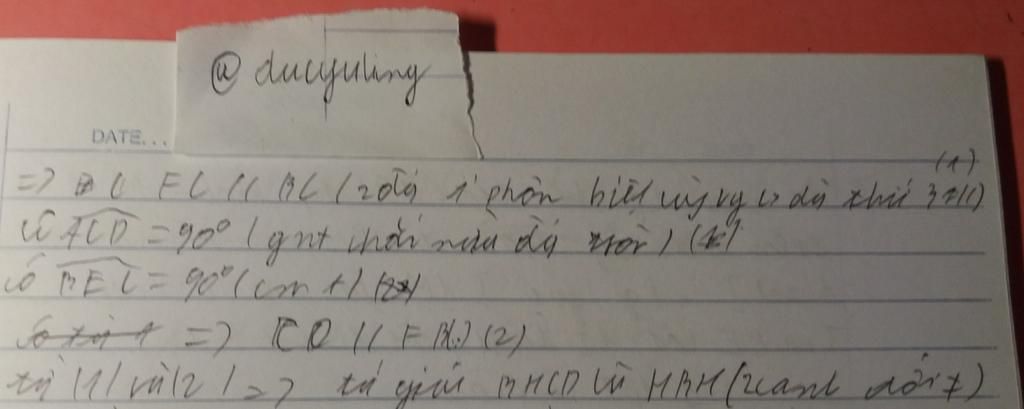 @ducyuling
DATE...
(1)
=> EC // BC (2 đg ⊥ phân biệt cùng vg vs đg thứ 3 => //)
Có ACD = 90° (gnt chắn nửa đg tròn)
Có BEC = 90° (cmt)
=> CD // EB (2)
từ (1) và (2) => tứ giác BHCD là HBH (2 cạnh đối //)